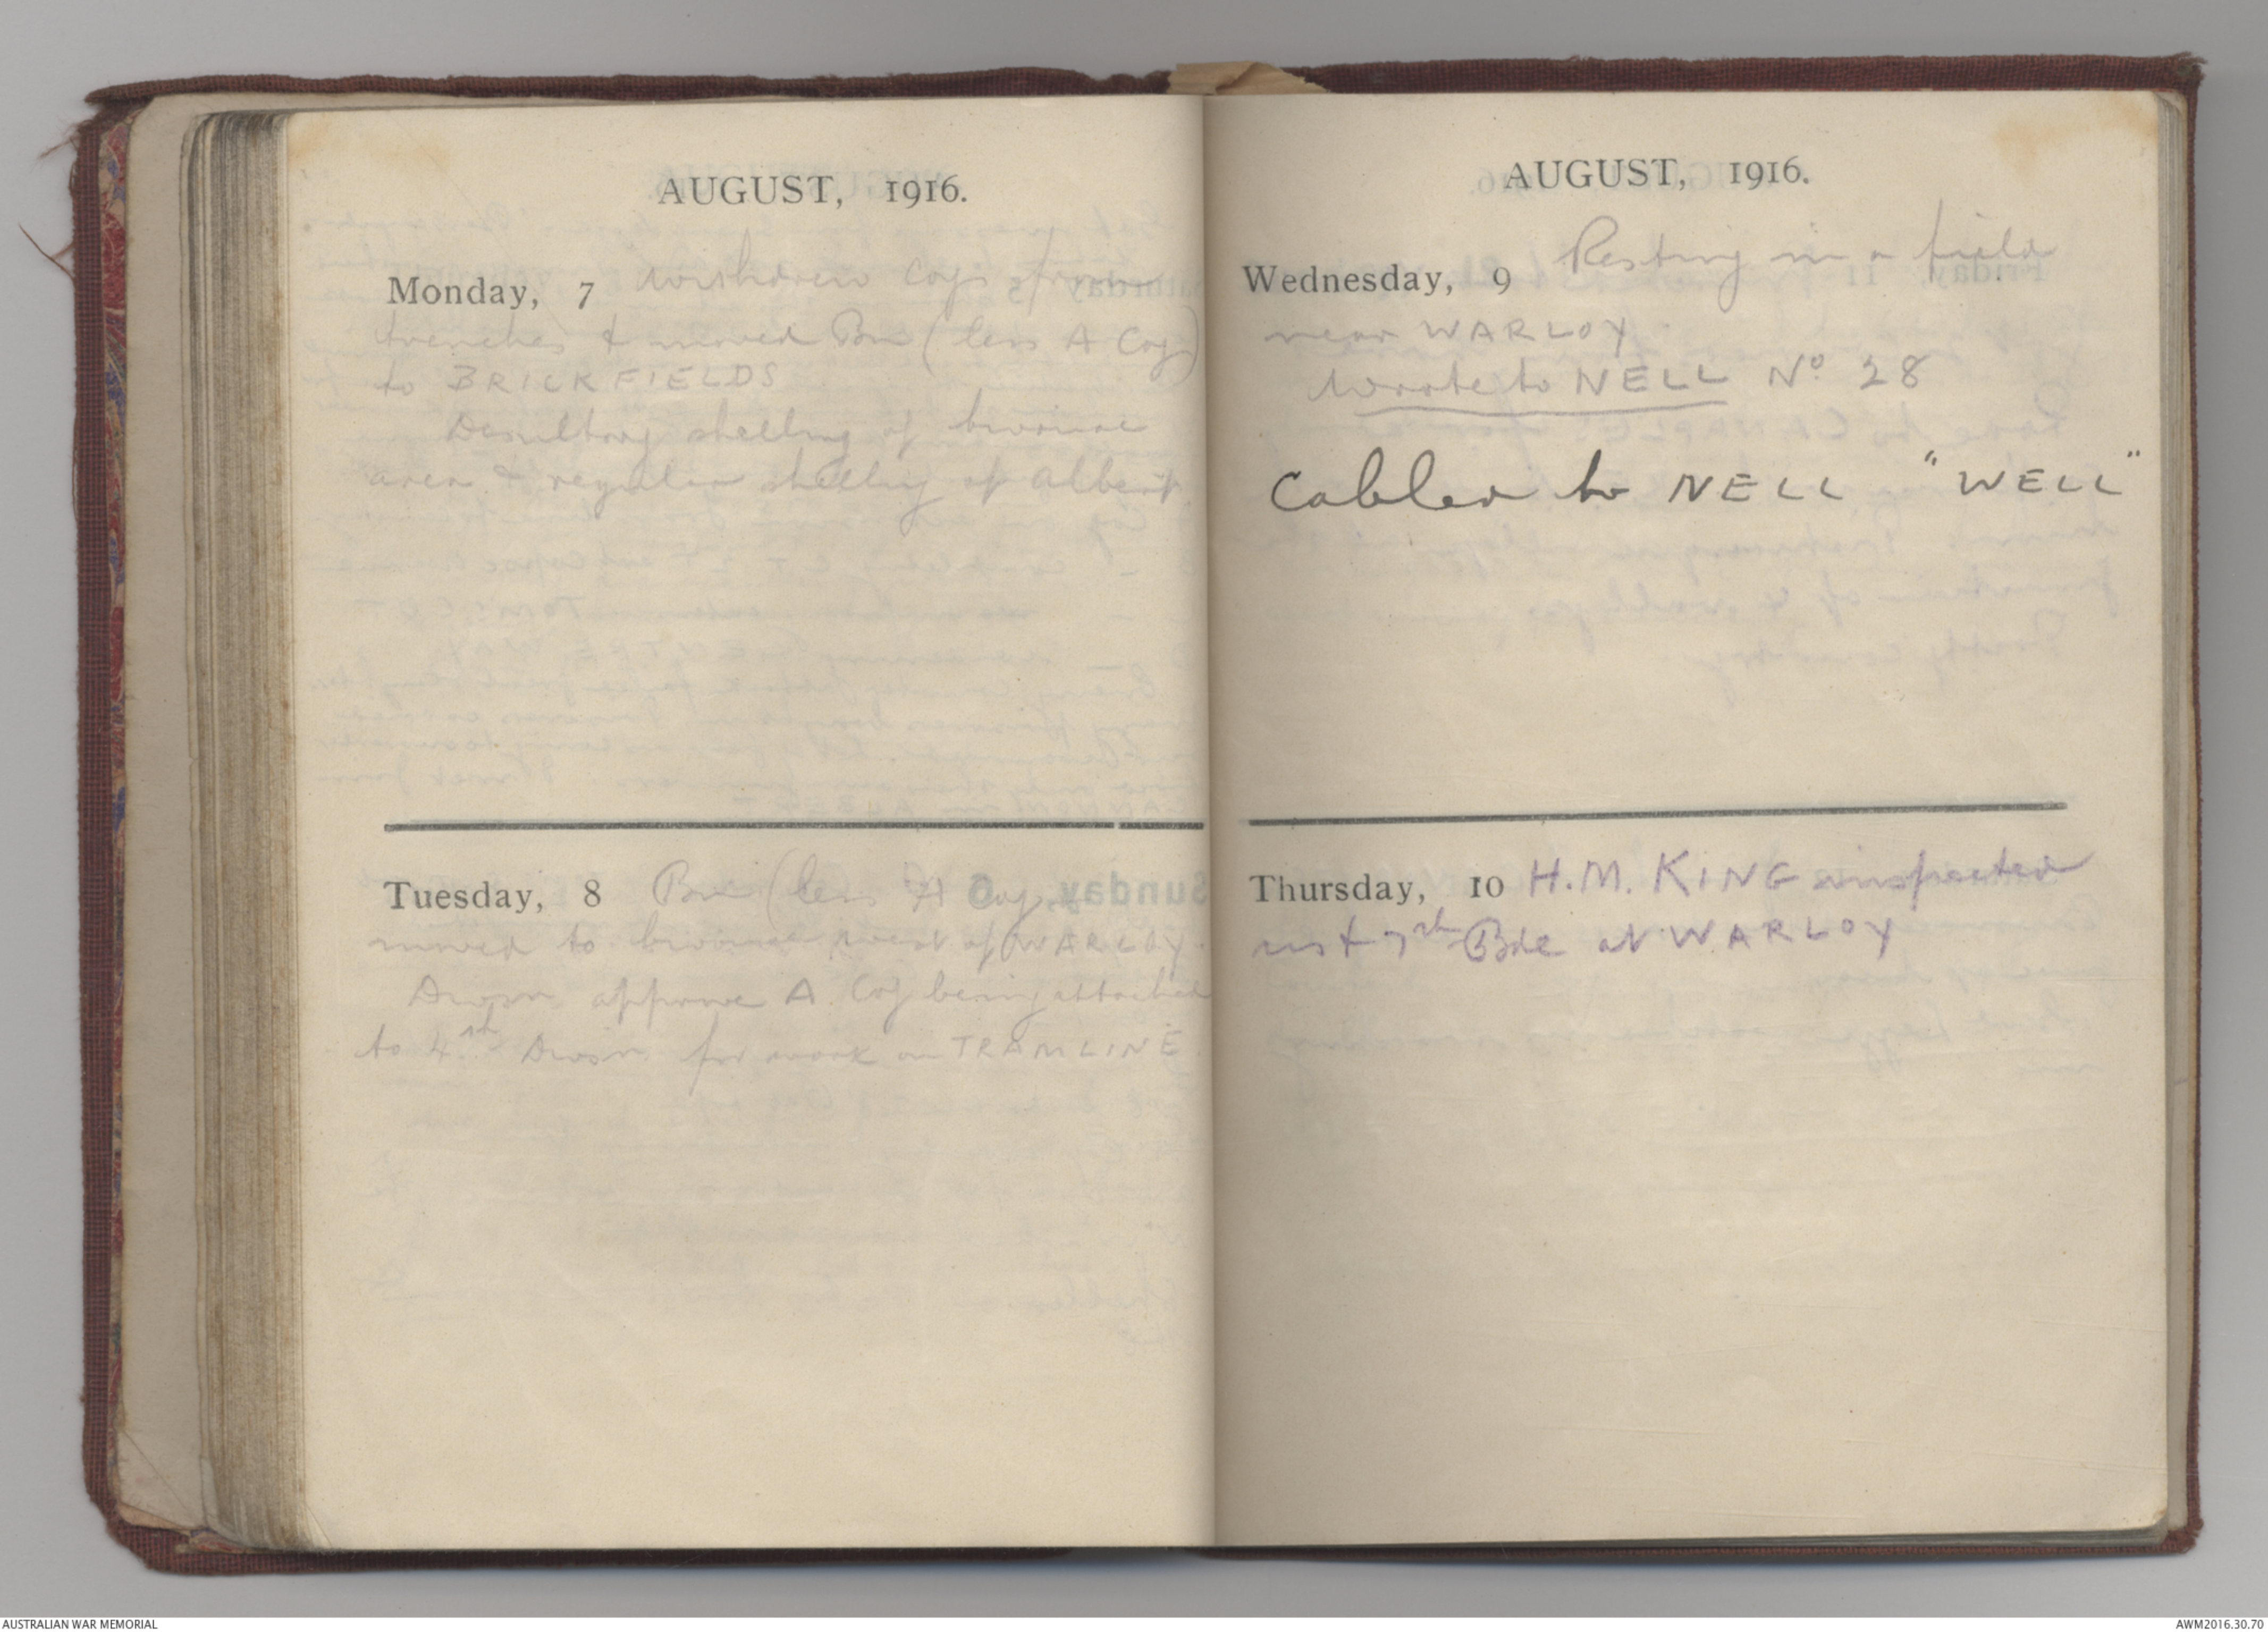 AUGUST, 1916.
Monday, 7 Withdrew Coys from
trenches & moved Bn (less A Coy)
to BRICKFIELDS
Desultory shelling of bivouac
area & regular shelling of Albert.
Tuesday, 8 Bn (less A Coy)
moved to bivouac west of WARLOY.
Divsn approve A. Coy being attached
to 4th Divsn for work on TRAMLINE.
AUGUST, 1916.
Wednesday, 9 Resting in a field
near WARLOY.
Wrote to NELL No 28
Cabled to NELL "WELL"
Thursday, 10 H.M. KING inspected
us & 7th Bde at WARLOY
AUSTRALIAN WAR MEMORIAL
AWM2016.30.70